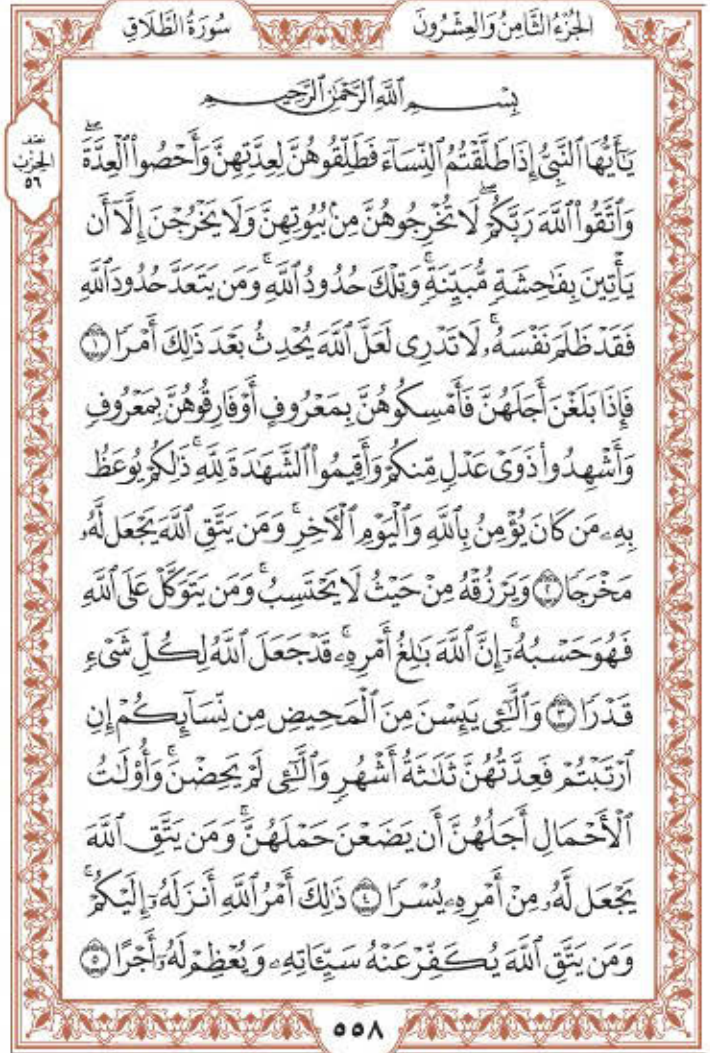 الجُزْءُ الثَّامِنُ وَالعِشْرُونَ
سُورَةُ الطَّلَاقِ
نصف
الحزب
٥٦
بِسْمِ ٱللَّهِ ٱلرَّحْمَٰنِ ٱلرَّحِيمِ
يَٰٓأَيُّهَا ٱلنَّبِىُّ إِذَا طَلَّقْتُمُ ٱلنِّسَآءَ فَطَلِّقُوهُنَّ لِعِدَّتِهِنَّ وَأَحْصُوا۟ ٱلْعِدَّةَۖ
وَٱتَّقُوا۟ ٱللَّهَ رَبَّكُمْۖ لَا تُخْرِجُوهُنَّ مِنۢ بُيُوتِهِنَّ وَلَا يَخْرُجْنَ إِلَّآ أَن
يَأْتِينَ بِفَٰحِشَةٍ مُّبَيِّنَةٍۚ وَتِلْكَ حُدُودُ ٱللَّهِۚ وَمَن يَتَعَدَّ حُدُودَ ٱللَّهِ
فَقَدْ ظَلَمَ نَفْسَهُۥۚ لَا تَدْرِى لَعَلَّ ٱللَّهَ يُحْدِثُ بَعْدَ ذَٰلِكَ أَمْرًا ١
فَإِذَا بَلَغْنَ أَجَلَهُنَّ فَأَمْسِكُوهُنَّ بِمَعْرُوفٍ أَوْ فَارِقُوهُنَّ بِمَعْرُوفٍ
وَأَشْهِدُوا۟ ذَوَىْ عَدْلٍ مِّنكُمْ وَأَقِيمُوا۟ ٱلشَّهَٰدَةَ لِلَّهِۚ ذَٰلِكُمْ يُوعَظُ
بِهِۦ مَن كَانَ يُؤْمِنُ بِٱللَّهِ وَٱلْيَوْمِ ٱلْءَاخِرِۚ وَمَن يَتَّقِ ٱللَّهَ يَجْعَل لَّهُۥ
مَخْرَجًا ٢ وَيَرْزُقْهُ مِنْ حَيْثُ لَا يَحْتَسِبُۚ وَمَن يَتَوَكَّلْ عَلَى ٱللَّهِ
فَهُوَ حَسْبُهُۥٓۚ إِنَّ ٱللَّهَ بَٰلِغُ أَمْرِهِۦۚ قَدْ جَعَلَ ٱللَّهُ لِكُلِّ شَىْءٍ
قَدْرًا ٣ وَٱلَّٰٓـِٔى يَئِسْنَ مِنَ ٱلْمَحِيضِ مِن نِّسَآئِكُمْ إِنِ
ٱرْتَبْتُمْ فَعِدَّتُهُنَّ ثَلَٰثَةُ أَشْهُرٍ وَٱلَّٰٓـِٔى لَمْ يَحِضْنَۚ وَأُو۟لَٰتُ
ٱلْأَحْمَالِ أَجَلُهُنَّ أَن يَضَعْنَ حَمْلَهُنَّۚ وَمَن يَتَّقِ ٱللَّهَ
يَجْعَل لَّهُۥ مِنْ أَمْرِهِۦ يُسْرًا ٤ ذَٰلِكَ أَمْرُ ٱللَّهِ أَنزَلَهُۥٓ إِلَيْكُمْۚ
وَمَن يَتَّقِ ٱللَّهَ يُكَفِّرْ عَنْهُ سَيِّـَٔاتِهِۦ وَيُعْظِمْ لَهُۥٓ أَجْرًا ٥
٥٥٨